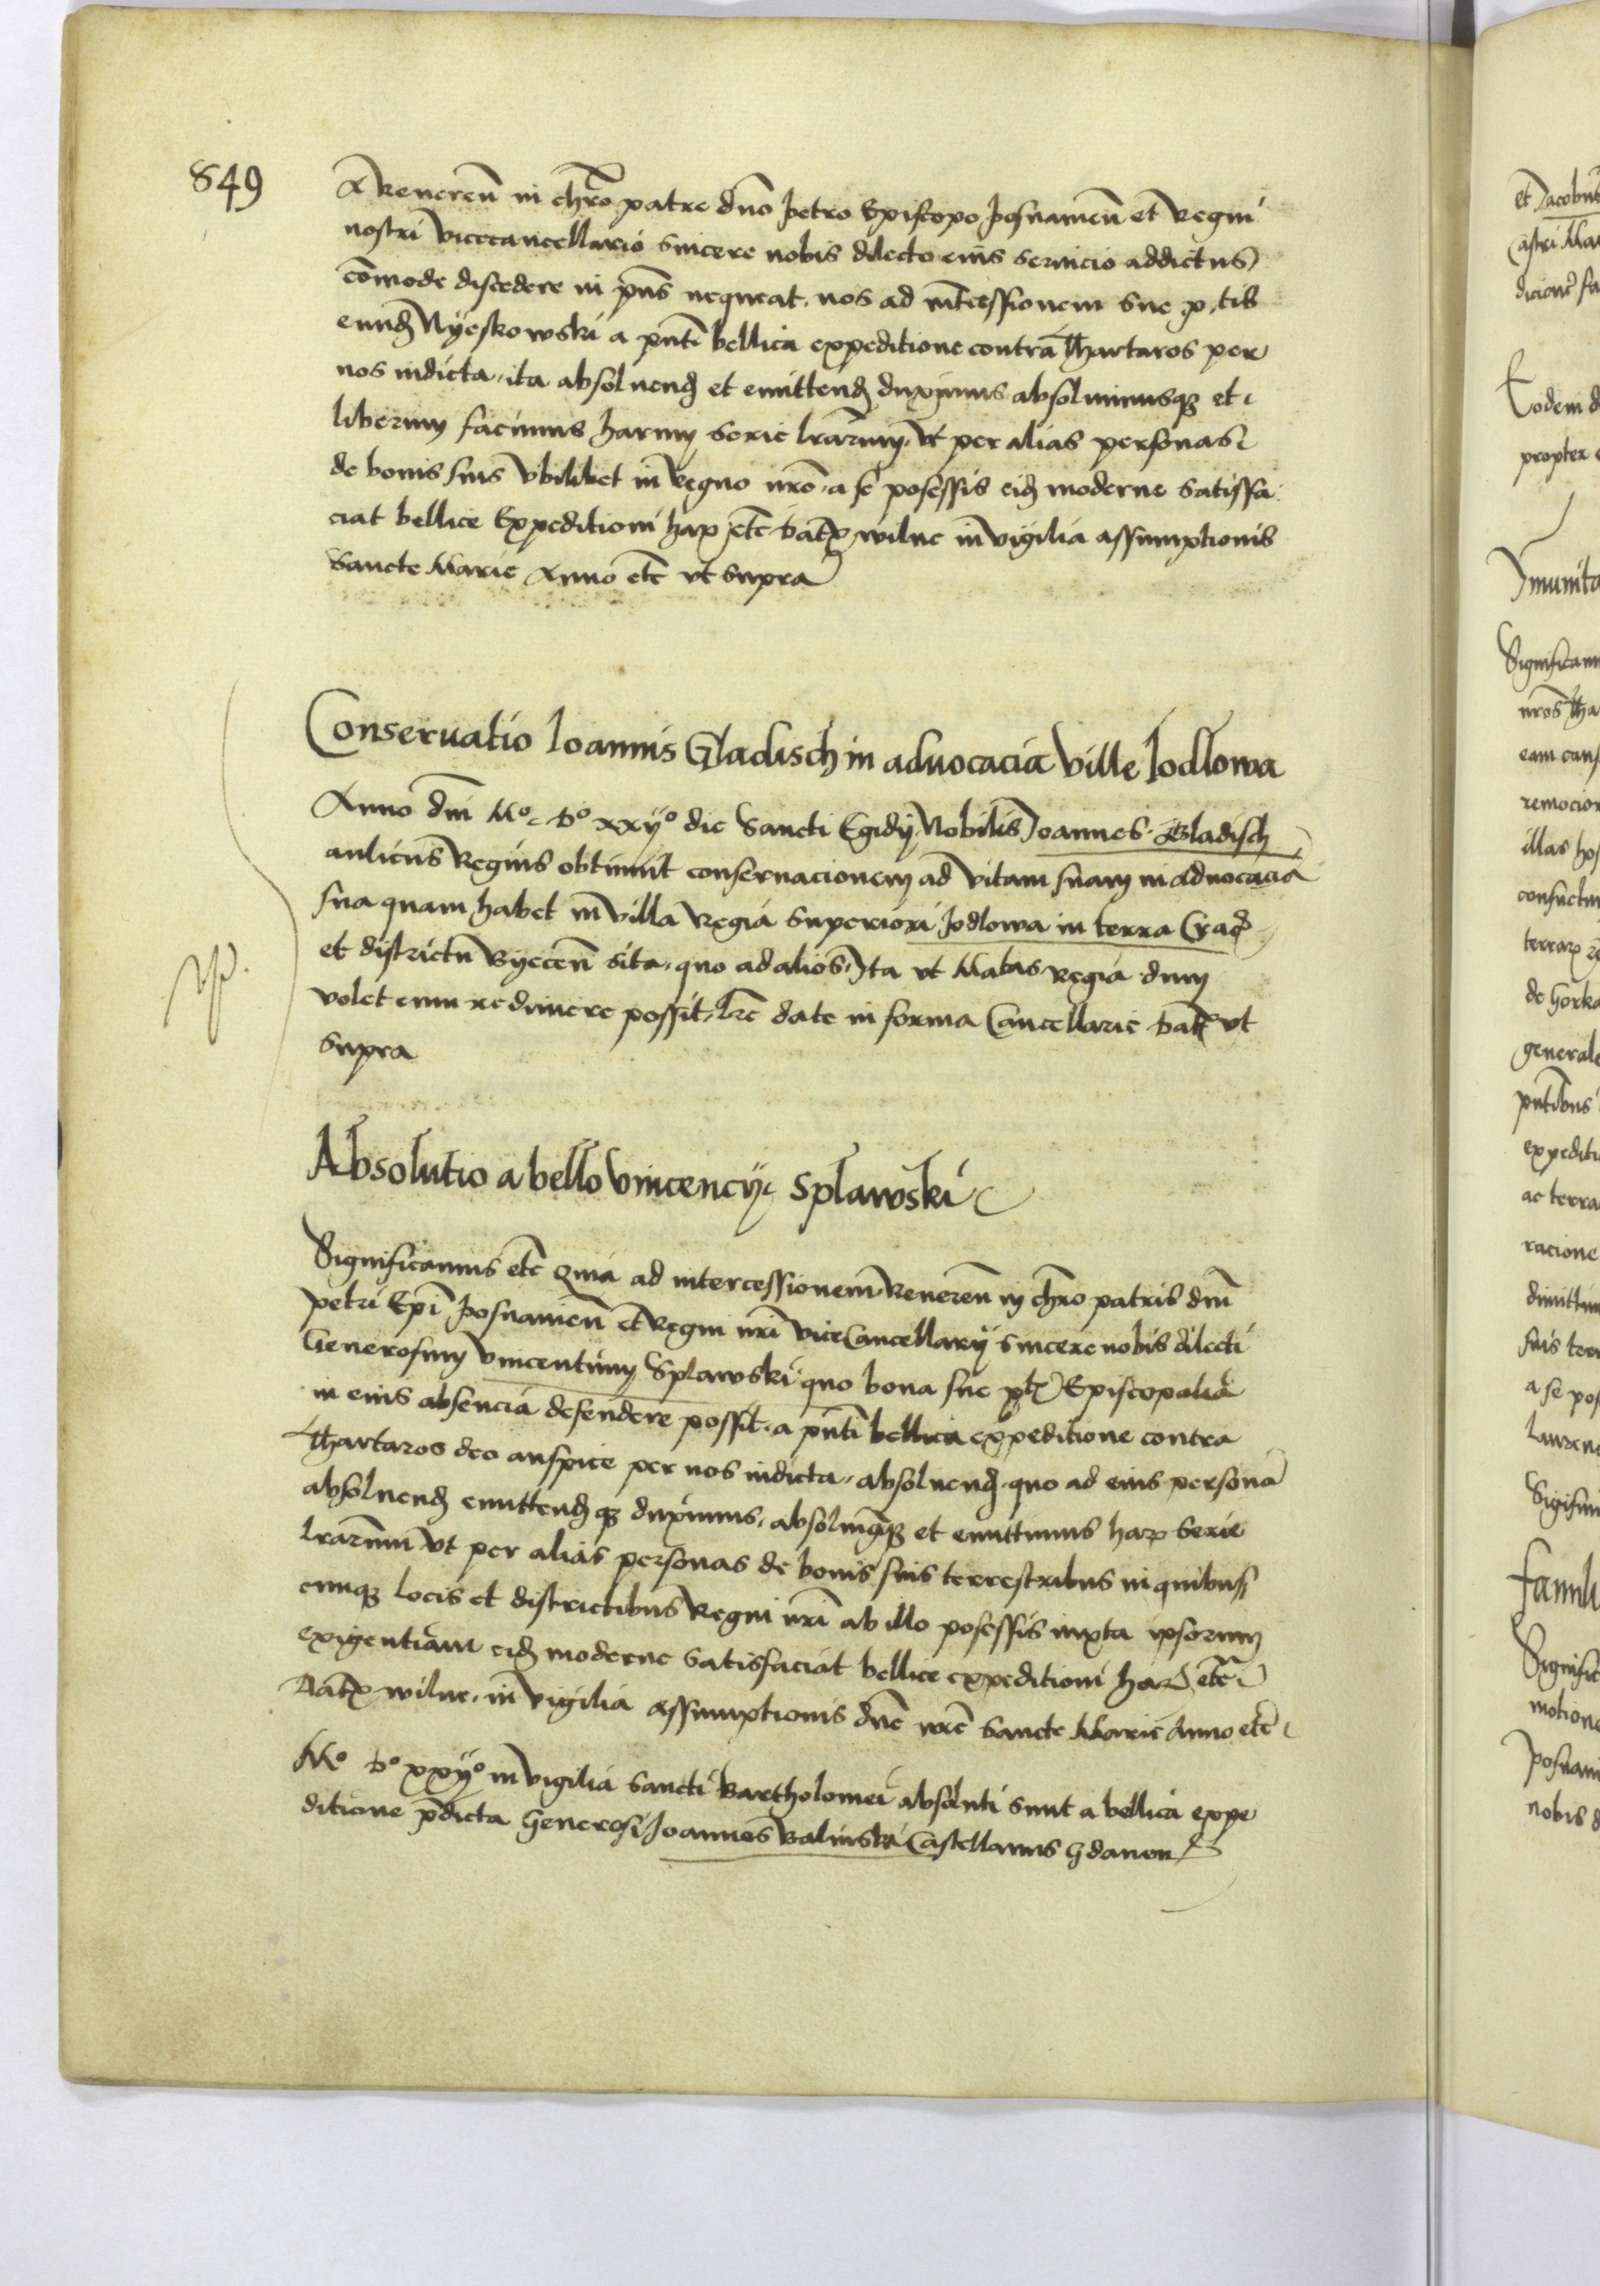 849
A Reveren̄ in chr̄o patre dn̄o petro Episcopo posnanien̄ et Regni
nostri vicecancellario sincere nobis dilecto eius servicio addictus
cōmode discedere in pn̄s nequeat, nos ad intercessionem sue p. tis
eund Nyeskowski a pn̄ti bellica expeditione contra Thartaros per
nos indicta, ita absoluend et emittend duximus absoluimusq et
liberum facimus harum serie lrārum, vt per alias personas
de bonis suis vbilibet in Regno nrō a se possessis eid moderne satisfa
ciat bellice Expeditioni har etc dat wilne in vigilia assumptionis
Sancte Marie Anno etc vt supra
Conseruatio Ioannis Gladisch in aduocacia ville Iodlowa
Anno dn̄i Mo. Do xxijo die Sancti Egidij Nobilis Joannes Gladisch
aulicus Regius obtinuit conseruacionem ad vitam suam in aduocacia
sua quam habet in villa Regia superiori Jodlowa in terra Crac
et districtu Byecen̄ sita, quo ad alios, Ita vt Matas Regia dum
volet eum redimere possit, lre date in forma Cancellarie dat vt
supra
Absolutio a bello vincencij Splawski
Significamus etc Quia ad intercessionem Reveren̄ in chr̄o patris dn̄i
petri Epi posnanien̄ et Regni nrī viceCancellarij sincere nobis dilecti
Generosum vincentium Splawski quo bona sue pt Episcopalia
in eius absencia defendere possit, a pn̄ti bellica expeditione contra
Thartaros deo auspice per nos indicta, absoluend, quo ad eius personā
absoluend emittend q duximus, absoluimqq et emittimus har serie
lrārum vt per alias personas de bonis suis terrestribus in quibus
cunq locis et districtibus Regni nrī ab illo possessis iuxta ipsorum
exigentiam eid moderne satisfaciat bellice expeditioni har etc
Dat wilne, in vigilia Assumptionis dn̄e nrē Sancte Marie Anno etc
Mo Do xxijo in vigilia Sancti Bartholomei absoluti sunt a bellica expe
ditione p̄dicta Generosi Joannes Balinski Castellanus Gdanen
et Jacobus
Eodem d
propter
Significam
illas hos
de Gorka
general
pn̄tibus
expediti
ac terra
racione
a se pos
Signific
motione
posnani
nobis d